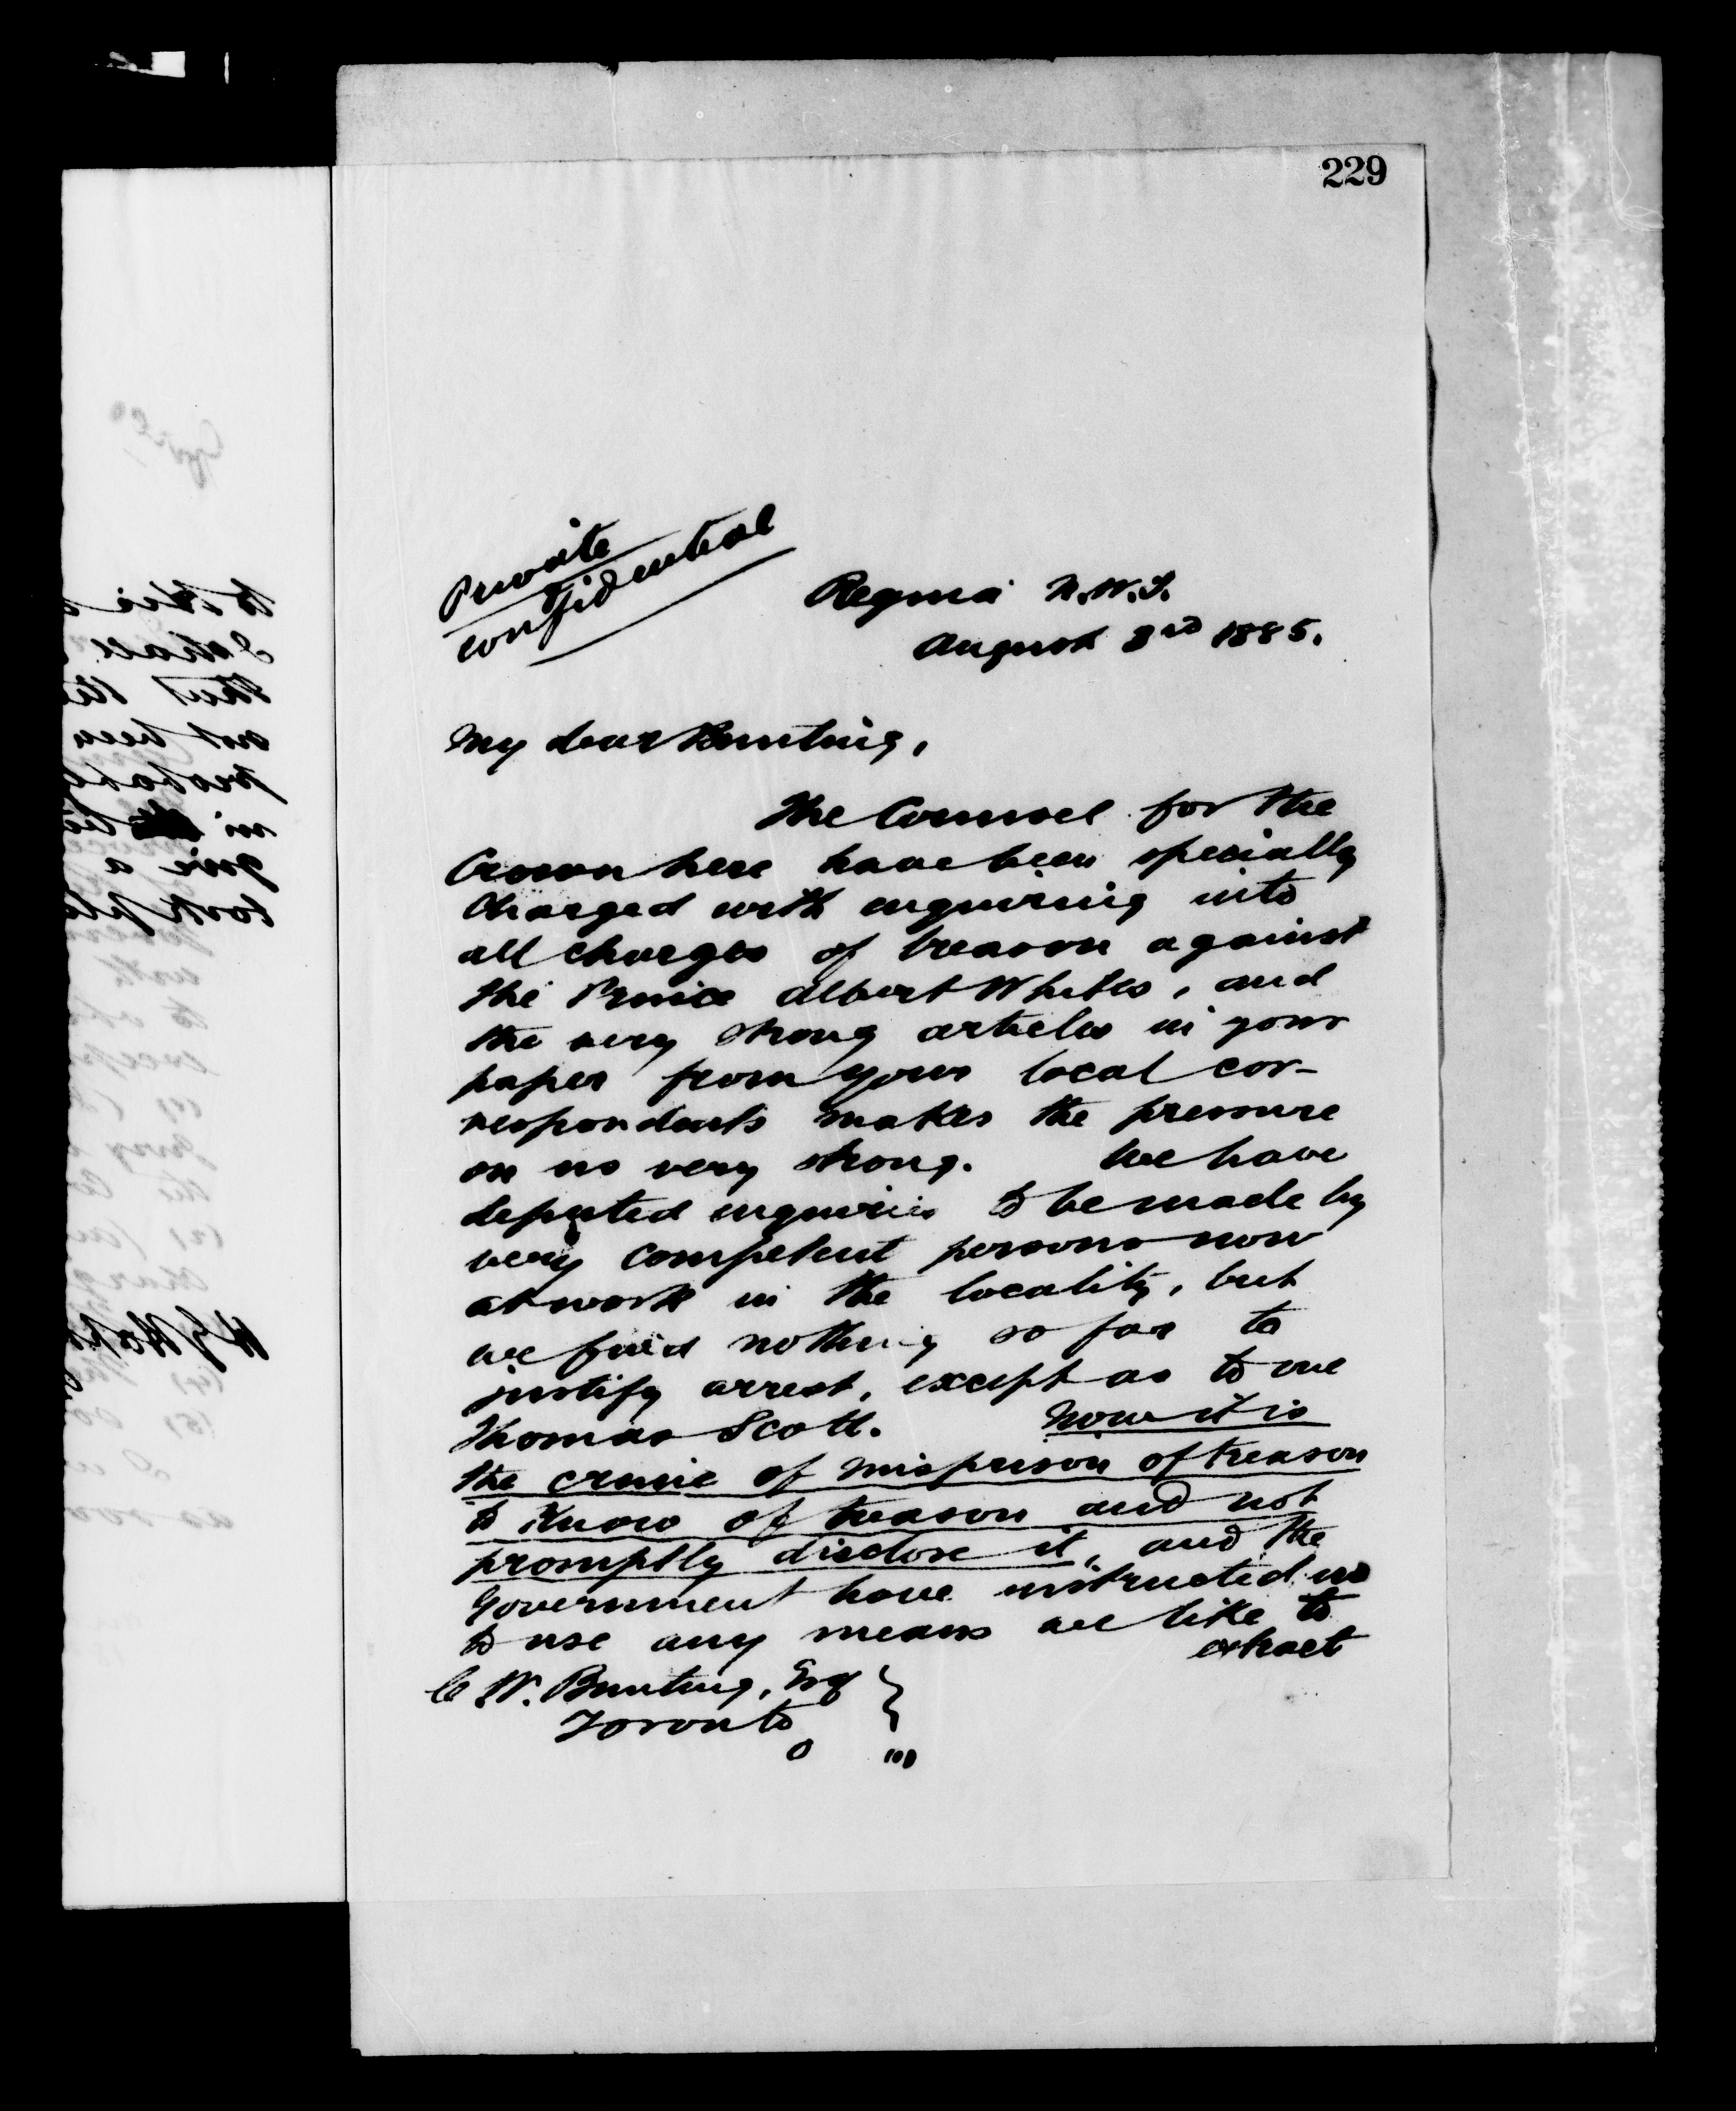 229
Private
confidential
Regina N.W.T.
August 3rd 1885.
My dear Bunting,
The Counsel for the
Crown here have been specially
charged with enquiring into
all charges of treason against
the Prince Albert Whites, and
the very strong articles in your
paper from your local cor-
respondents makes the pressure
on us very strong. We have
deputed enquiries to be made by
very competent persons now
at work in the locality, but
we find nothing so far to
justify arrest, except as to one
Thomas Scott. Now it is
the crime of misprision of treason
to know of treason and not
promptly disclose it, and the
Government have instructed us
to use any means we like to
extract
C W. Bunting, Esq
Toronto